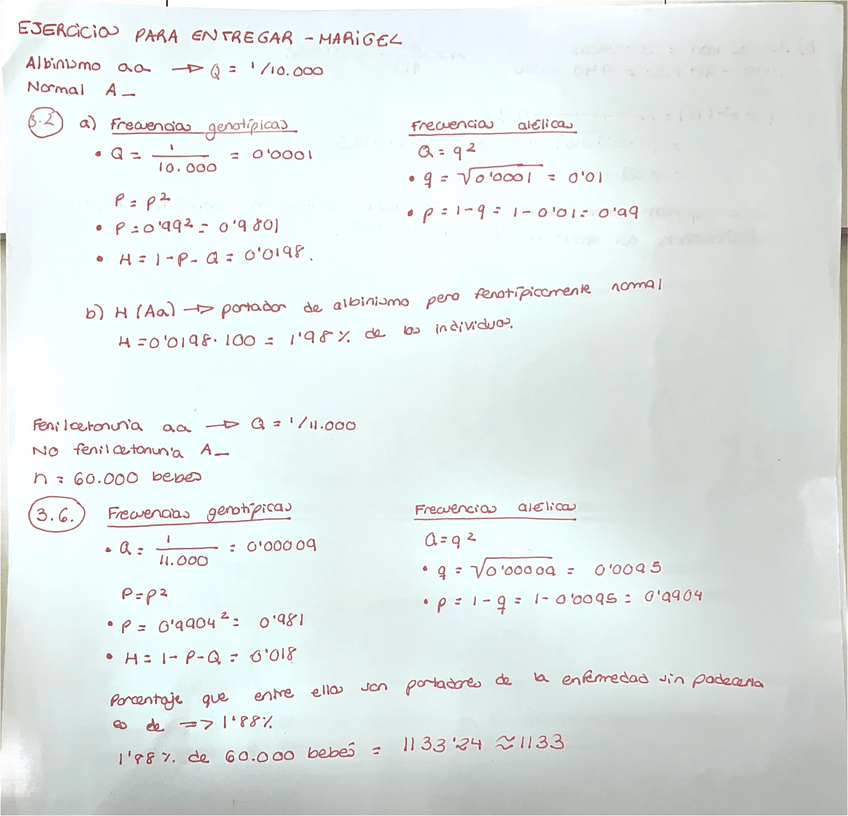 EJERCICIOS PARA ENTREGAR - MARIGEL
Albinismo aa → Q = 1/10.000
Normal A_
3.2 a) Frecuencias genotípicas
• Q = 1/10.000 = 0'0001
P = p²
• P = 0'99² = 0'9801
• H = 1 - P - Q = 0'0198.
Frecuencias alélicas
Q = q²
• q = √0'0001 = 0'01
• p = 1 - q = 1 - 0'01 = 0'99
b) H (Aa) → portador de albinismo pero fenotípicamente normal
H = 0'0198 · 100 = 1'98 % de los individuos.
Fenilcetonuria aa → Q = 1/11.000
NO fenilcetonuria A_
n = 60.000 bebés
3.6. Frecuencias genotípicas
• Q = 1/11.000 = 0'00009
P = p²
• P = 0'9904² = 0'981
• H = 1 - P - Q = 0'018
Frecuencias alélicas
Q = q²
• q = √0'00009 = 0'0095
• p = 1 - q = 1 - 0'0095 = 0'9904
Porcentaje que entre ellos son portadores de la enfermedad sin padecerla
es de => 1'88%
1'88 % de 60.000 bebés = 1133'24 ≈ 1133